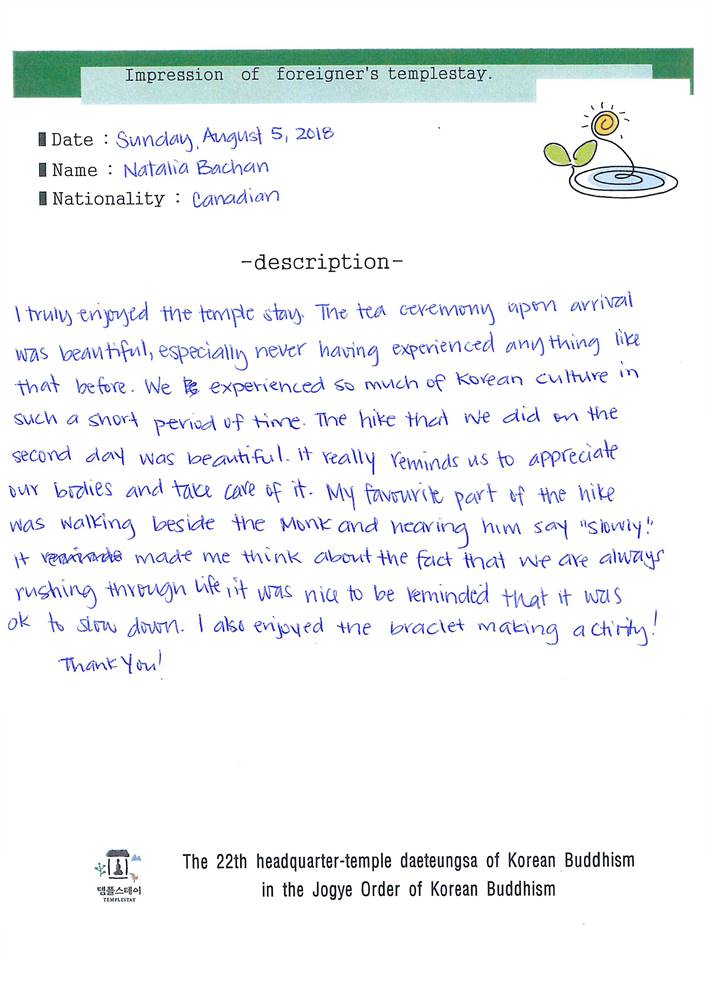 Impression of foreigner's templestay.
Date : Sunday, August 5, 2018
Name : Natalia Bachan
Nationality : Canadian
-description-
I truly enjoyed the temple stay. The tea ceremony upon arrival
was beautiful, especially never having experienced anything like
that before. We experienced so much of Korean culture in
such a short period of time. The hike that we did on the
second day was beautiful. It really reminds us to appreciate
our bodies and take care of it. My favourite part of the hike
was walking beside the Monk and hearing him say "slowly!"
It reminds made me think about the fact that we are always
rushing through life, it was nice to be reminded that it was
ok to slow down. I also enjoyed the braclet making activity!
Thank You!
템플스테이
TEMPLESTAY
The 22th headquarter-temple daeteungsa of Korean Buddhism
in the Jogye Order of Korean Buddhism